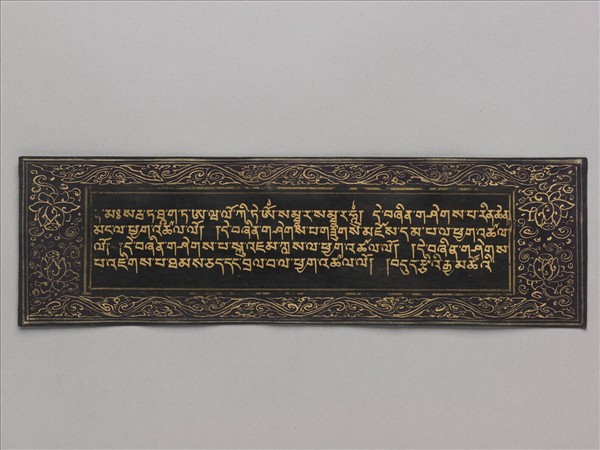 མཿསརྦ་ཏ་ཐཱ་ག་ཏ་ཨ་ཝ་ལོ་ཀི་ཏེ་ཨོཾ་སམྦྷར་སམྦྷར་ཧཱུྃ། །དེ་བཞིན་གཤེགས་པ་རིན་ཆེན་
མང་ལ་ཕྱག་འཚལ་ལོ། །དེ་བཞིན་གཤེགས་པ་གཟུགས་མཛེས་དམ་པ་ལ་ཕྱག་འཚལ་
ལོ། །དེ་བཞིན་གཤེགས་པ་སྐུ་འབྱམ་ཀླས་ལ་ཕྱག་འཚལ་ལོ། །དེ་བཞིན་གཤེགས་
པ་འཇིགས་པ་ཐམས་ཅད་དང་བྲལ་བ་ལ་ཕྱག་འཚལ་ལོ། །བདུད་རྩིའི་རྒྱ་མཚོའི